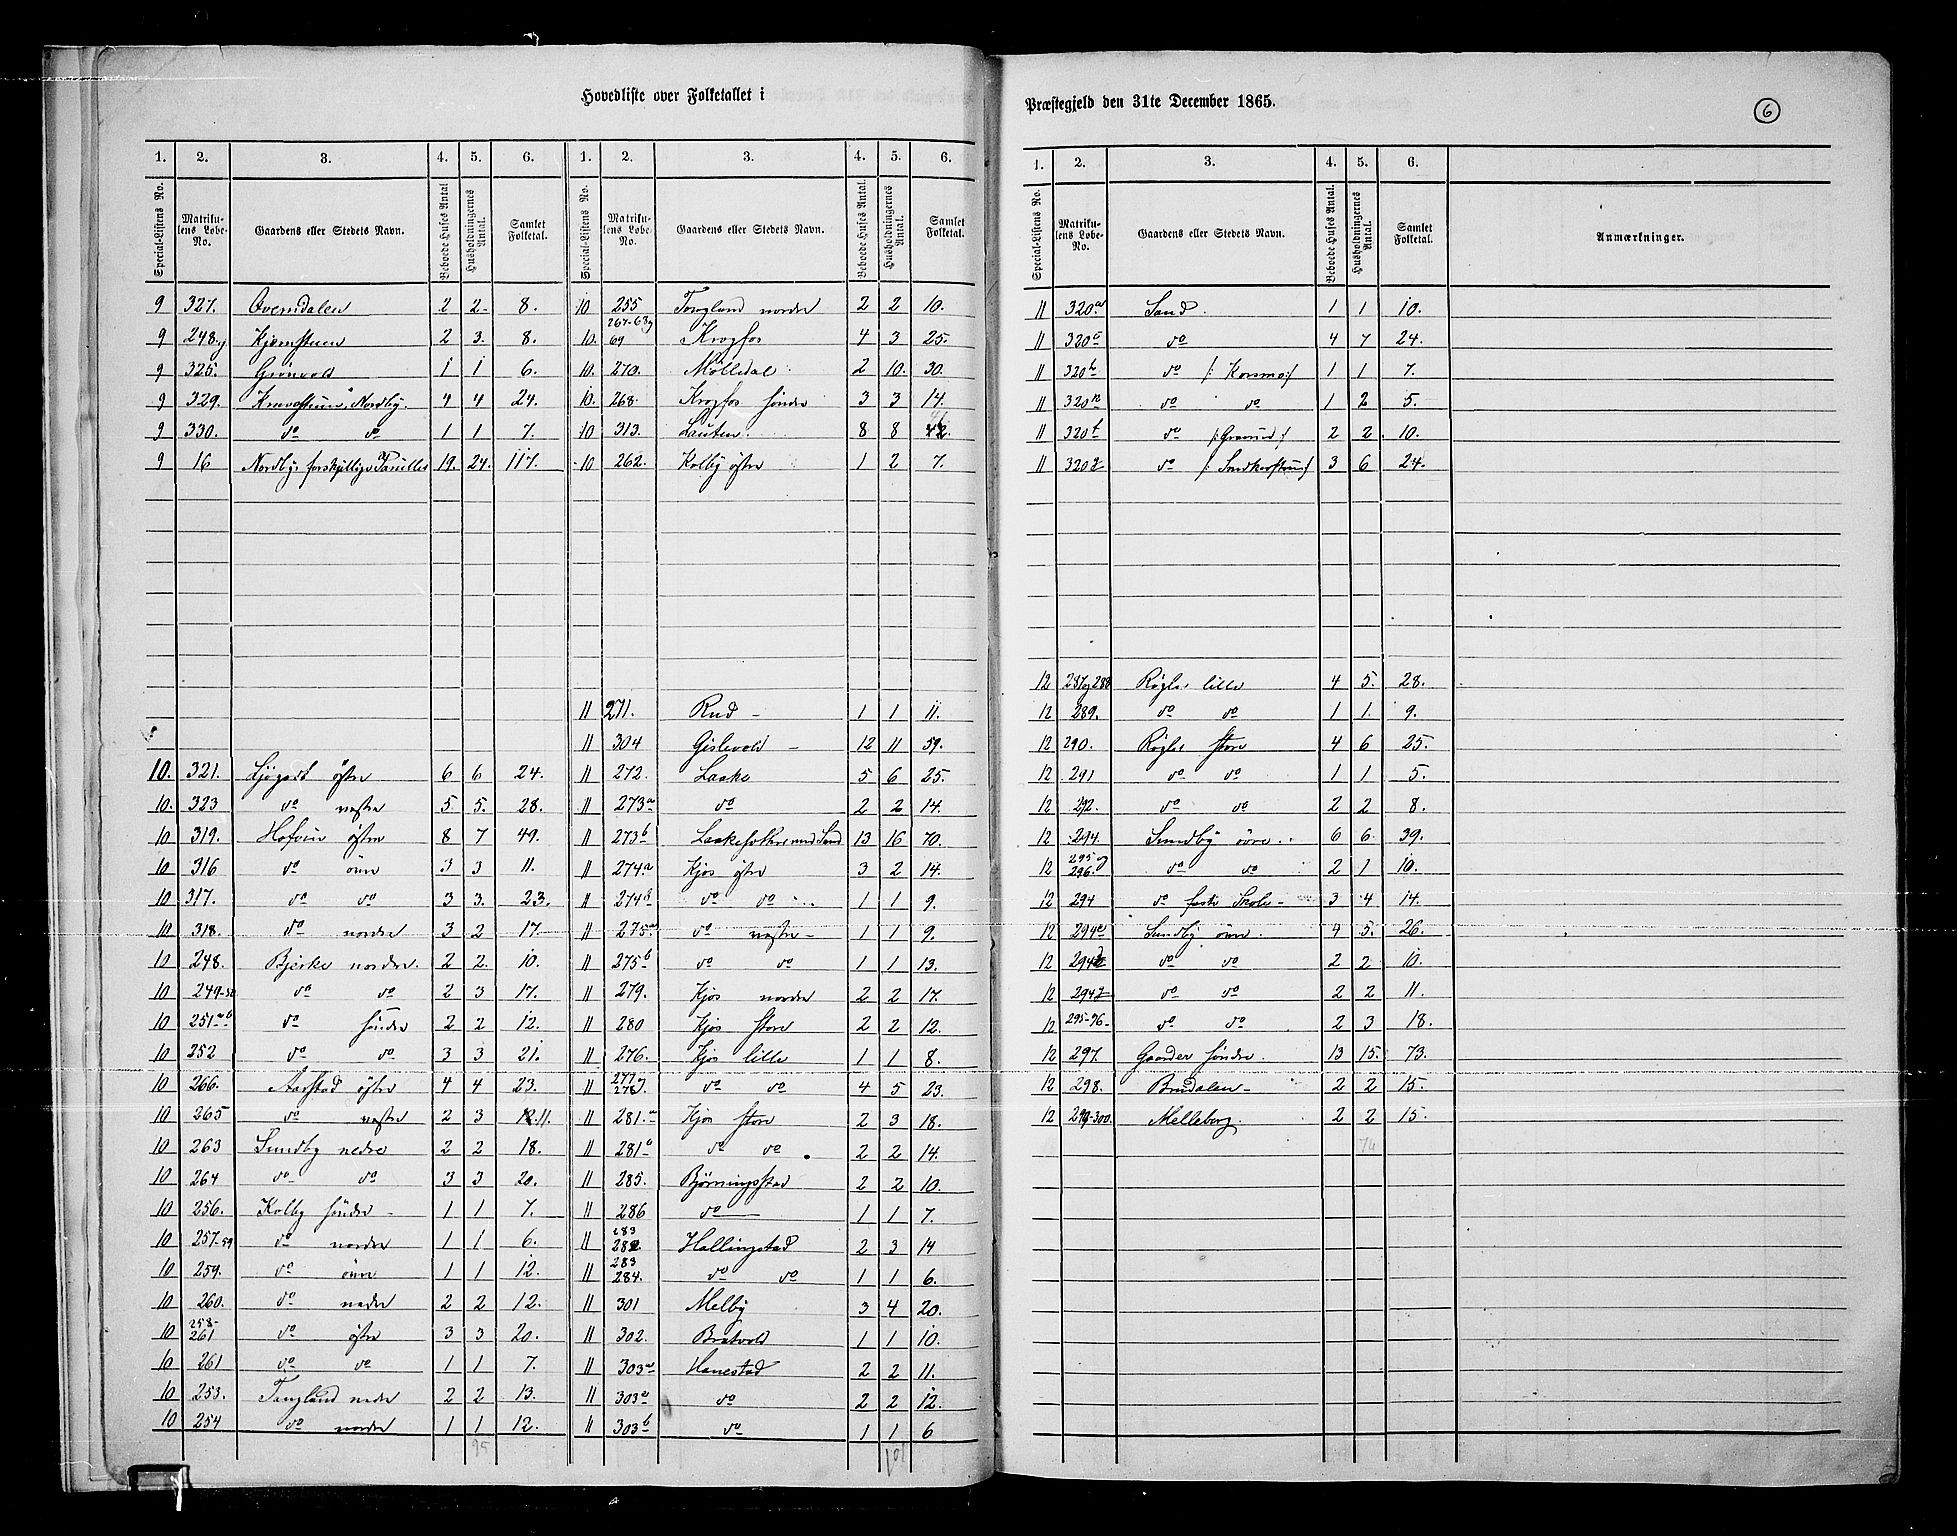 Hovedliste over Folketallet i
Præstegjeld den 31te December 1865.
6
1. 2. 3. 4. 5. 6. 1. 2. 3. 4. 5. 6.
Special-Listens No. Matrikulens Løbe-No. Gaardens eller Stedets Navn. Beboede Huses Antal Husholdningernes Antal. Samlet Folketal. Special-Listens No. Matrikulens Løbe-No. Gaardens eller Stedets Navn. Beboede Huses Antal. Husholdningernes Antal. Samlet Folketal.
9 327. Overndalen 2 2 8.
9 248 Kjernstuen 2 3. 8.
9 325. Grönvold 1 1 6.
9 329. Nordby. 4 4 24.
9 330. do do 1 1 7.
9 16 Nordby, forskjellige Familier 19. 24. 117.
10. 321. Ljøgodt östre 6 6 24.
10. 323 do vestre 5 5. 28.
10 319. Hofvin östre 8 7 49.
10 316 do övre 3 3 11.
10 317. do do 3 3. 23.
10 318. do nordre 3 2 17.
10 248. Bjerke nordre. 2 2. 10.
10 249-50 do do 2 3 17.
10 251 a b do söndre 2 2 12.
10 252 do do 3 3 21.
10 266. Aarstad östre 4 4 23.
10 265 do vestre 2 3 11.
10 263 Sundby nedre 2 2 18.
10 264 do do 3 3 20.
10 256. Kolby söndre 1 1 7.
10 257-59 do nordre 1 1 6.
10 259. do övre 1 1 12.
10 260. do nedre 2 2 12.
10 258-261 do östre 3 3 20.
10 261 do do 1 1 7.
10 253. Tongland nedre 2 2 13.
10 254 do nordre 1 1 12.
95
10 255 Tongland nordre 2 2 10.
10. 267-68 69 Krogfos 4 3 25.
10. 270. Mölledal 2 10. 30.
10. 268. Krogfos söndre 3 3 14.
10 313. Lauten. 8 8 42.
10 262. Kolby östre 1 2 7.
11 271. Rud 1 1 11.
11 304 Gislevold 12 11 59.
11 272. Laake 5 6 25.
11 273a do 2 2 14.
11 273b Laake Sand 13 16 70.
11 274a Kjos östre 3 2 14.
11 274b do do 1 1 9.
11 275a do vestre 1 1 9.
11 275b do do 1 1 13.
11 279. Kjos nordre 2 2 17.
11 280 Kjos store 2 2 12.
11 276. Kjos lille 1 1 8.
11 277 278 do do 4 5 23.
11 281a Kjos store 2 3 18.
11 281b do do 2 2 14.
11 285. Bjørningstad 2 2 10.
11 286 do 1 1 7.
11 283 282 Hallingstad 2 3 14
11 283 284. do do 1 1 6.
11 301 Melby 3 4 20.
11 302. Bratvold 1 1 10.
11 303a Hanestad 2 2 11.
11 303a do 2 2 12.
11 303b do 1 1 6
101
1. 2. 3. 4. 5. 6.
Special-Listens No. Matrikulens Løbe-No. Gaardens eller Stedets Navn. Beboede Huses Antal. Husholdningernes Antal. Samlet Folketal. Anmærkninger.
11 320a Sand 1 1 10.
11 320c do 4 7 24.
11 320h do /: Korsmo :/ 1 1 7.
11 320 do do 1 2 5.
11 320f do 2 2. 10.
11 320 do 3 6 24.
12 287 og 288 Røgler lille 4 5. 28.
12 289. do do 1 1. 9.
12 290. Røgler store 4 6 25.
12 291 do do 1 1 5.
12 292. do do 2 2 8.
12 294. Sundby övre 6 6. 39.
12 295 og 296. do do 2 1 10.
12 294 do faste Skole 3 4 14.
12 294e Sundby övre. 4 5. 26.
12 294 do do 2 2 10.
12 294 do do 2 2 11.
12 295-96 do do 2 3 18.
12 297. Gaarder söndre 13 15. 73.
12 298. Brudalen 2 2 15.
12 299-300. Melleberg. 2 2 15.
74